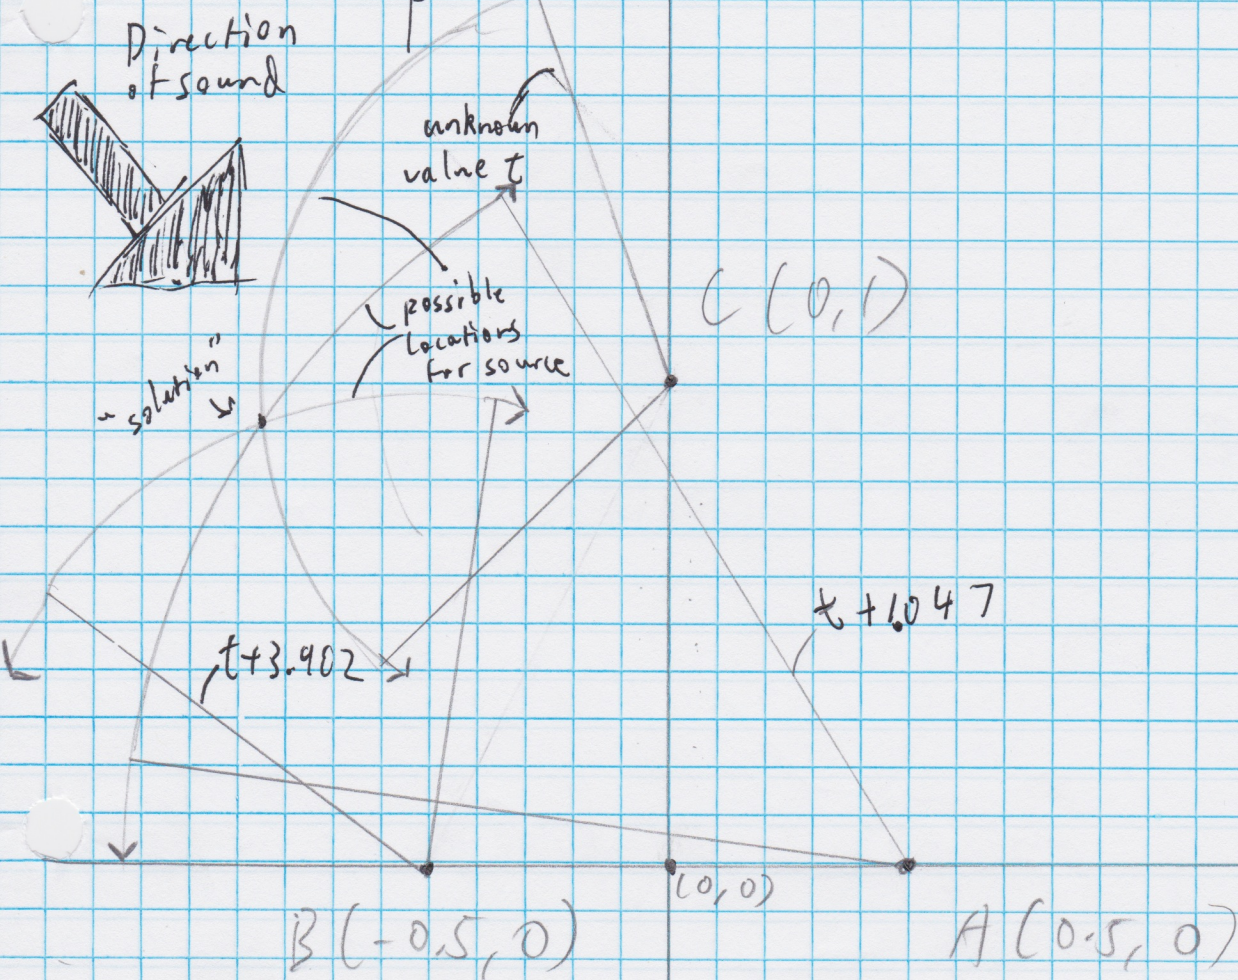 Direction
of sound
unknown
value t
C (0,1)
possible
locations
for source
"solution"
t+1.047
t+3.902
(0,0)
B (-0.5, 0)
A (0.5, 0)